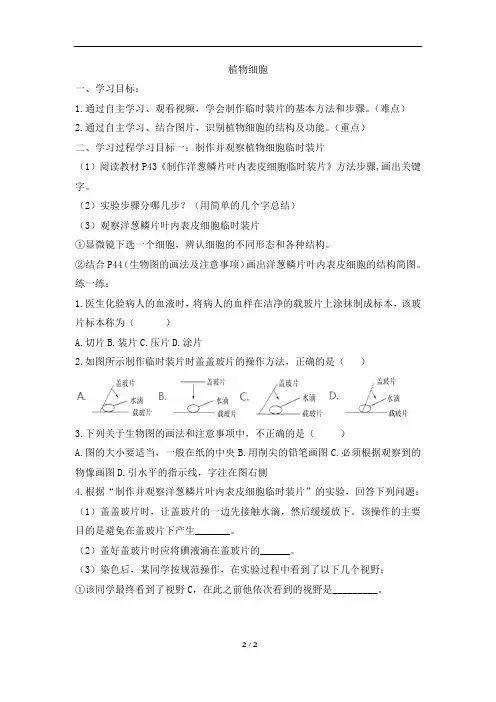 植物细胞
一、学习目标：
1.通过自主学习、观看视频，学会制作临时装片的基本方法和步骤。（难点）
2.通过自主学习、结合图片，识别植物细胞的结构及功能。（重点）
二、学习过程学习目标一：制作并观察植物细胞临时装片
（1）阅读教材P43《制作洋葱鳞片叶内表皮细胞临时装片》方法步骤,画出关键
字。
（2）实验步骤分哪几步？（用简单的几个字总结）
（3）观察洋葱鳞片叶内表皮细胞临时装片
①显微镜下选一个细胞，辨认细胞的不同形态和各种结构。
②结合P44（生物图的画法及注意事项）画出洋葱鳞片叶内表皮细胞的结构简图。
练一练：
1.医生化验病人的血液时，将病人的血样在洁净的载玻片上涂抹制成标本，该玻
片标本称为（ ）
A.切片B.装片C.压片D.涂片
2.如图所示制作临时装片时盖盖玻片的操作方法，正确的是（ ）
A. 盖玻片 水滴 载玻片 B. 盖玻片 水滴 载玻片 C. 盖玻片 水滴 载玻片 D. 盖玻片 水滴 载玻片
3.下列关于生物图的画法和注意事项中，不正确的是（ ）
A.图的大小要适当，一般在纸的中央B.用削尖的铅笔画图C.必须根据观察到的
物像画图D.引水平的指示线，字注在图右侧
4.根据“制作并观察洋葱鳞片叶内表皮细胞临时装片”的实验，回答下列问题：
（1）盖盖玻片时，让盖玻片的一边先接触水滴，然后缓缓放下。该操作的主要
目的是避免在盖玻片下产生______。
（2）盖好盖玻片时应将碘液滴在盖玻片的_____。
（3）染色后，某同学按规范操作，在实验过程中看到了以下几个视野：
①该同学最终看到了视野C，在此之前他依次看到的视野是________。
2 / 2